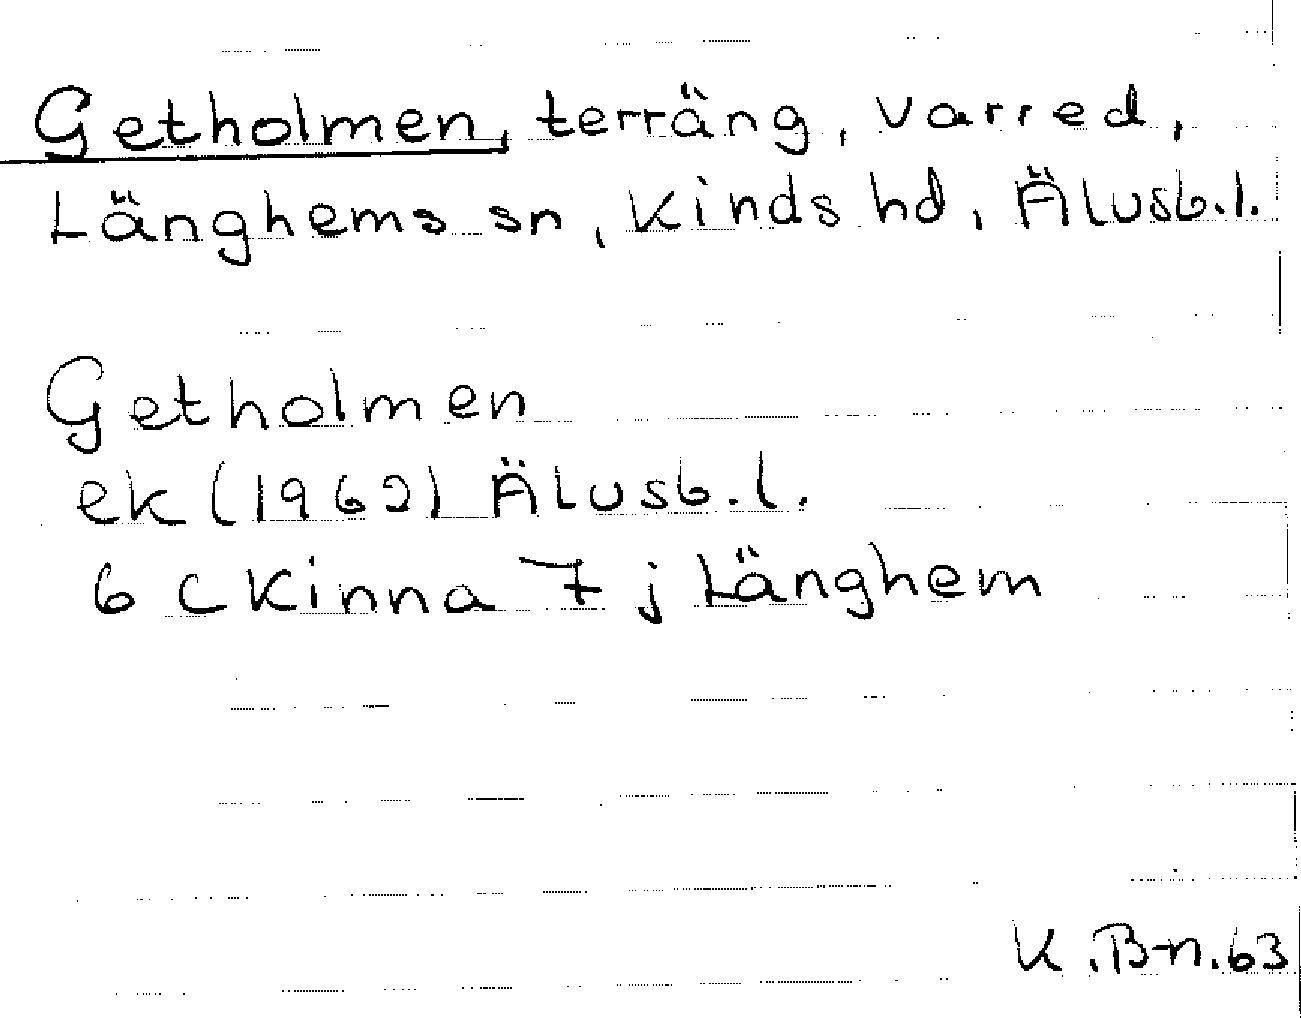 Getholmen, terräng, Varred,
Länghems sn, Kinds hd, Älvsb.l.
Getholmen
ek (1962) Älvsb.l.
6 C Kinna 7 j Länghem
K.B-n.63